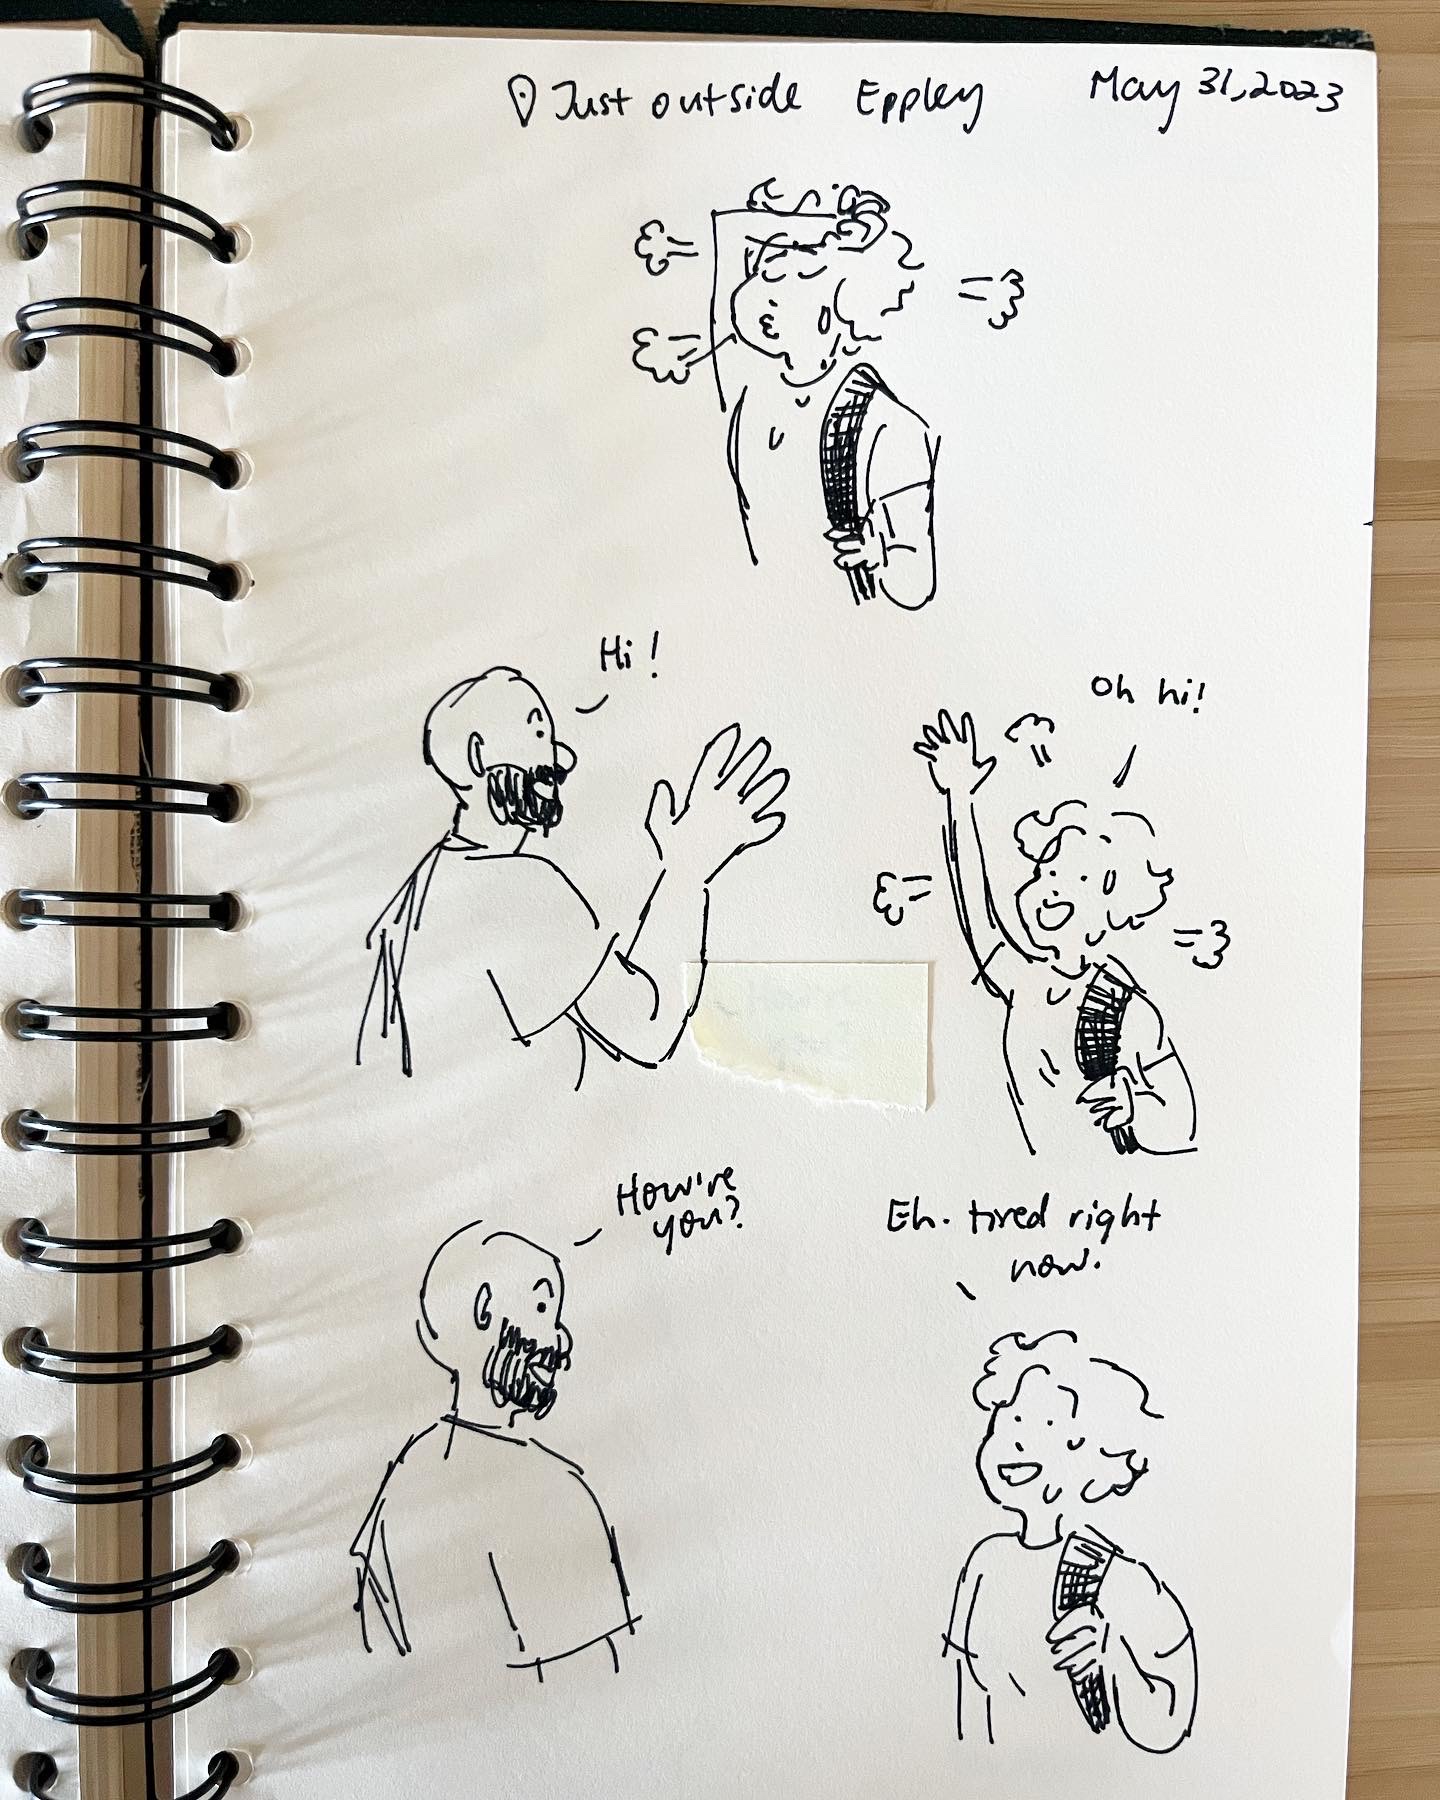 Just outside Eppley
May 31, 2023
Hi!
Oh hi!
How're
you?
Eh. tired right
now.